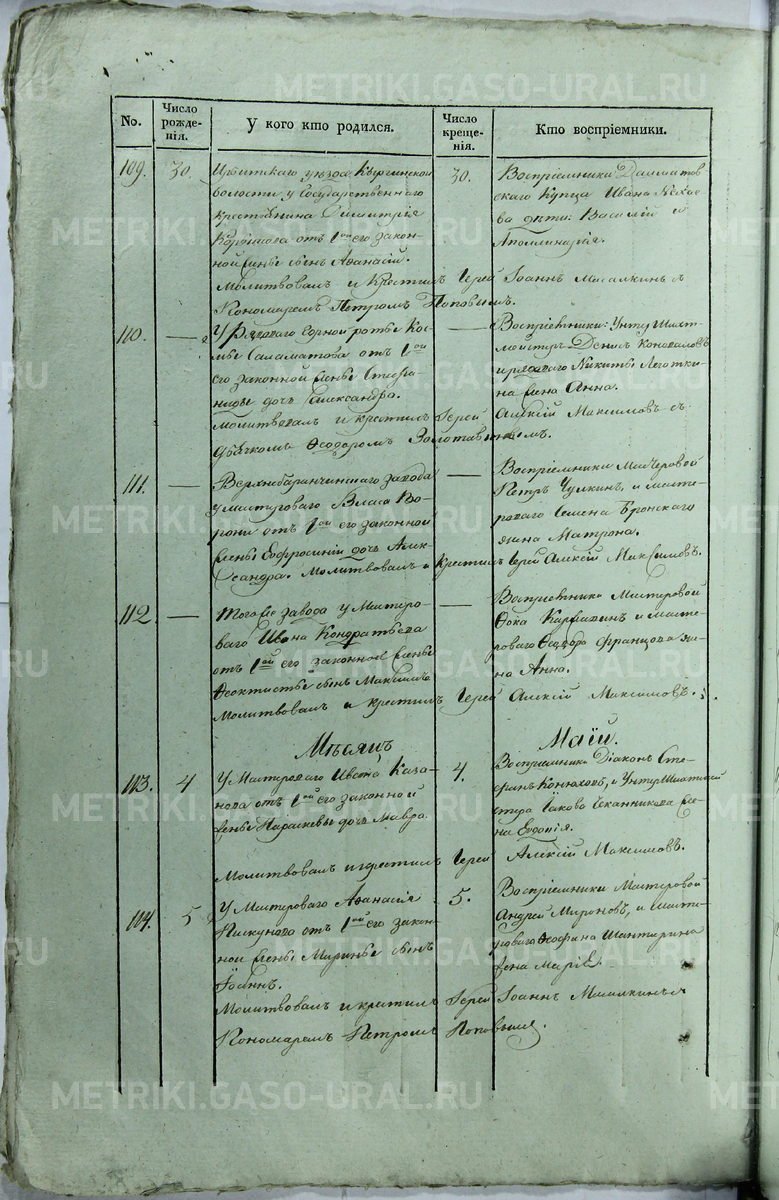 No.
Число рожденія.
У кого кто родился.
Число крещенія.
Кто воспріемники.
109.
30.
Ирбитскаго уѣзда Киргинской
волости у Государственнаго
крестьянина Димитрія
отъ 1ой его закон-
ной женѣ сынъ Афанасій.
Молитвовалъ и крестилъ Іерей Іоаннъ Мисалкинъ с
Пономаремъ Петромъ Поповымъ.
30.
Воспріемники Далматов
скаго Купца Ивана
дѣти: Василій и
Апполинарія.
110.
—
У Рядоваго Горной роты Кос-
мы Саламатова отъ 1ой
его законной жены Степа-
ниды дочь Александра.
Молитвовалъ и крестилъ Іерей Алексій Максимовъ съ
Дьячкомъ Ѳеодоромъ Золотавинымъ.
—
Воспріемники: Унтеръ Шахт-
мейстеръ Денис Коновалов
и рядоваго Никиты Леготки-
на жена Анна.
111.
—
Верхнебаранчинскаго завода
у мастероваго Власа Во-
рони отъ 1ой его законной
жены Евфросиніи дочь Алек-
сандра. Молитвовалъ и крестилъ Іерей Алексій Максимовъ.
—
Воспріемники Мастеровой
Петръ Чулкинъ, и масте-
роваго Семена Бронскаго
жена Матрона.
112.
—
Того же завода у Мастеро-
ваго Ивана Кондратьева
отъ 1ой его законной жены
Ѳеоктисты сынъ Максимъ
Молитвовалъ и крестилъ Іерей Алексій Максимовъ.
—
Воспріемники Мастеровой
Ѳока и масте-
роваго Ѳеодора Францова же-
на Анна.
Мѣсяцъ Маій.
113.
4
У Мастероваго Ивана Каза-
нова отъ 1ой его законной
жены Параскевы дочь Мавра.
Молитвовалъ и крестилъ Іерей Алексій Максимовъ.
4.
Воспріемники Діаконъ Сте-
фанъ Конюховъ, и Унтеръ Шихтмей
стера Іакова же-
на Евдокія.
114.
5
У Мастероваго Афанасія
Пискунова отъ 1ой его закон-
ной жены Марины сынъ
Іоаннъ.
Молитвовалъ и крестилъ Іерей Іоаннъ Мисалкинъ с
Пономаремъ Петромъ Поповымъ.
5.
Воспріемники Мастеровой
Андрей Мироновъ, и масте-
роваго Ѳеофана Шантурина
жена Марія.
METRIKI.GASO-URAL.RU